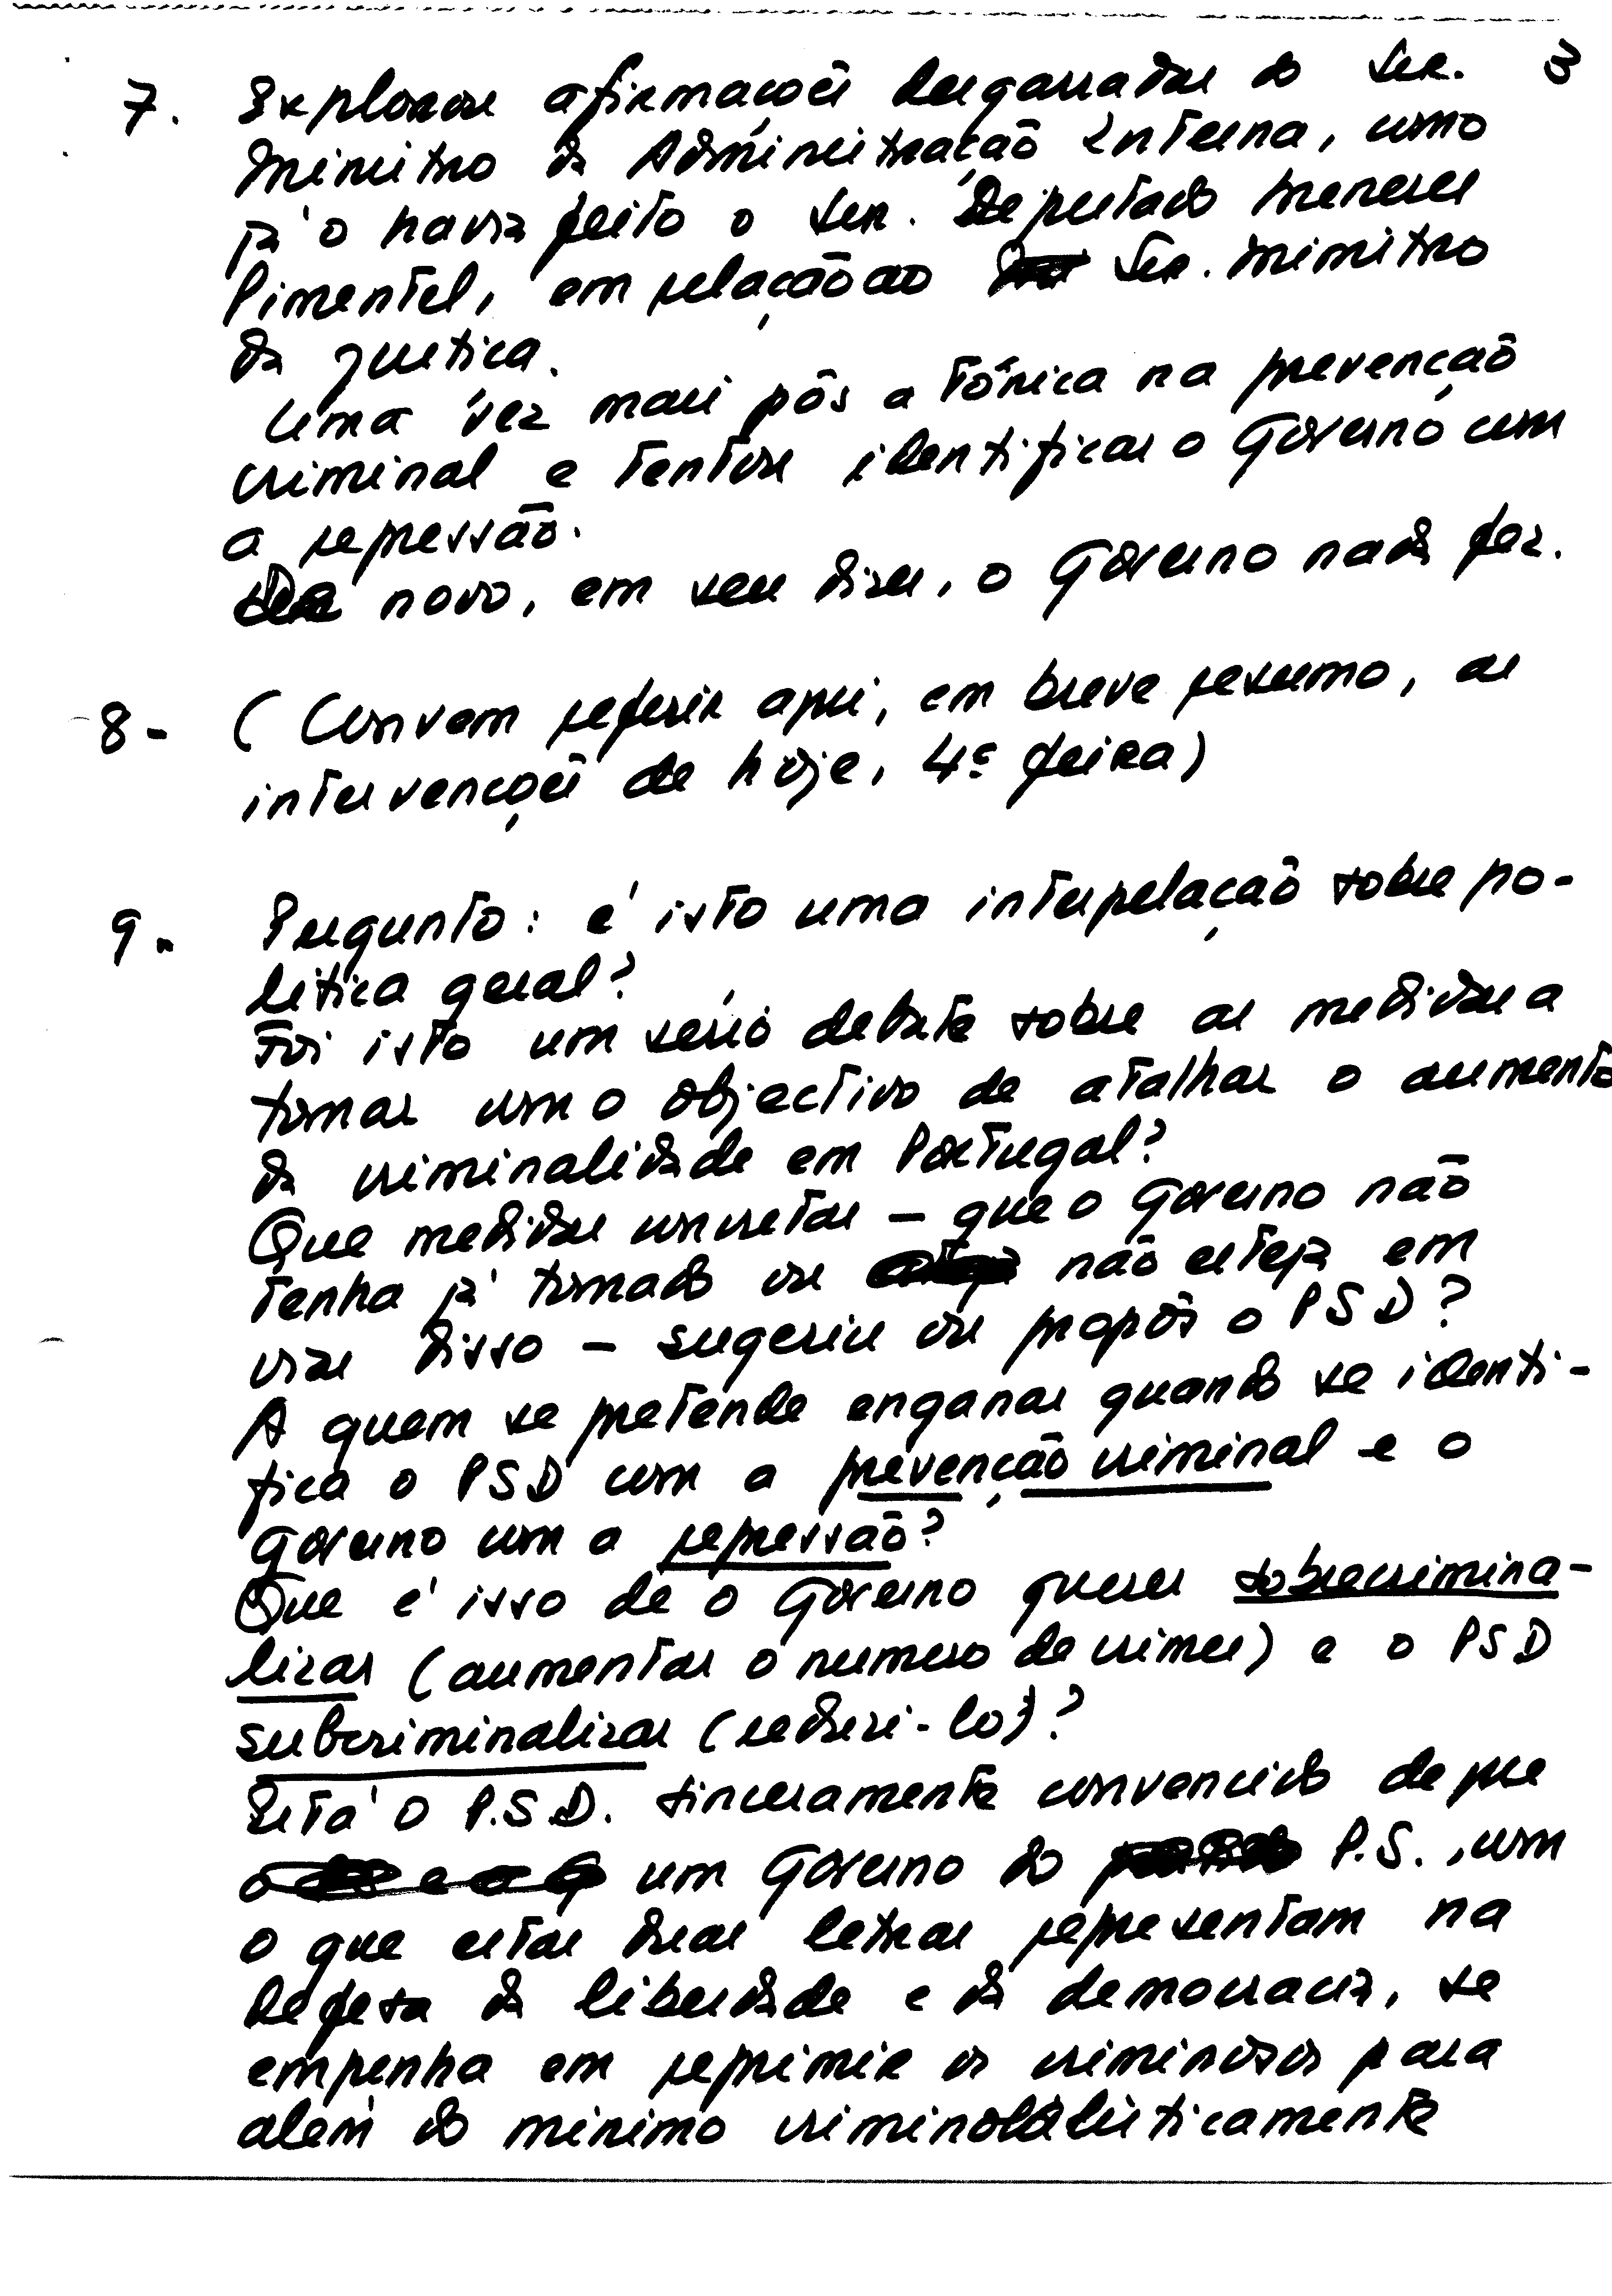 3
7. Explorou afirmações desgarradas do Sr.
Ministro da Administração Interna, como
já o havia feito o Sr. Deputado Meneses
Pimentel, em relação ao Sr. Ministro
da Justiça.
Uma vez mais pôs a tónica na prevenção
criminal e tentou identificar o Governo com
a repressão.
De novo, em seu dizer, o Governo nada fez.
8- (Convem referir aqui, em breve resumo, as
intervenções de hoje, 4ª feira)
9. Pergunto: é isto uma interpelação sobre po-
lítica geral?
Foi isto um sério debate sobre as medidas a
tomar com o objectivo de atalhar o aumento
da criminalidade em Portugal?
Que medidas concretas - que o Governo não
tenha já tomado ou não esteja em
vias disso - sugeriu ou propôs o PSD?
A quem se pretende enganar quando se identi-
fica o PSD com a prevenção criminal e o
Governo com a repressão?
Que é isso de o Governo querer sobrecrimina-
lizar (aumentar o numero de crimes) e o PSD
subcriminalizar (reduzi-lo)?
Está o P.S.D. sinceramente convencido de que
um Governo do P.S., com
o que estas duas letras representam na
defesa da liberdade e da democracia, se
empenha em reprimir os criminosos para
alem do mínimo